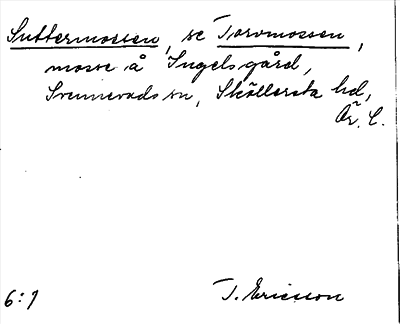 Suttermossen, se Torvmossen,
mosse å Ingelsgård,
Svennevads sn, Sköllersta hd,
Ör. l.
6:1 T. Ericsson